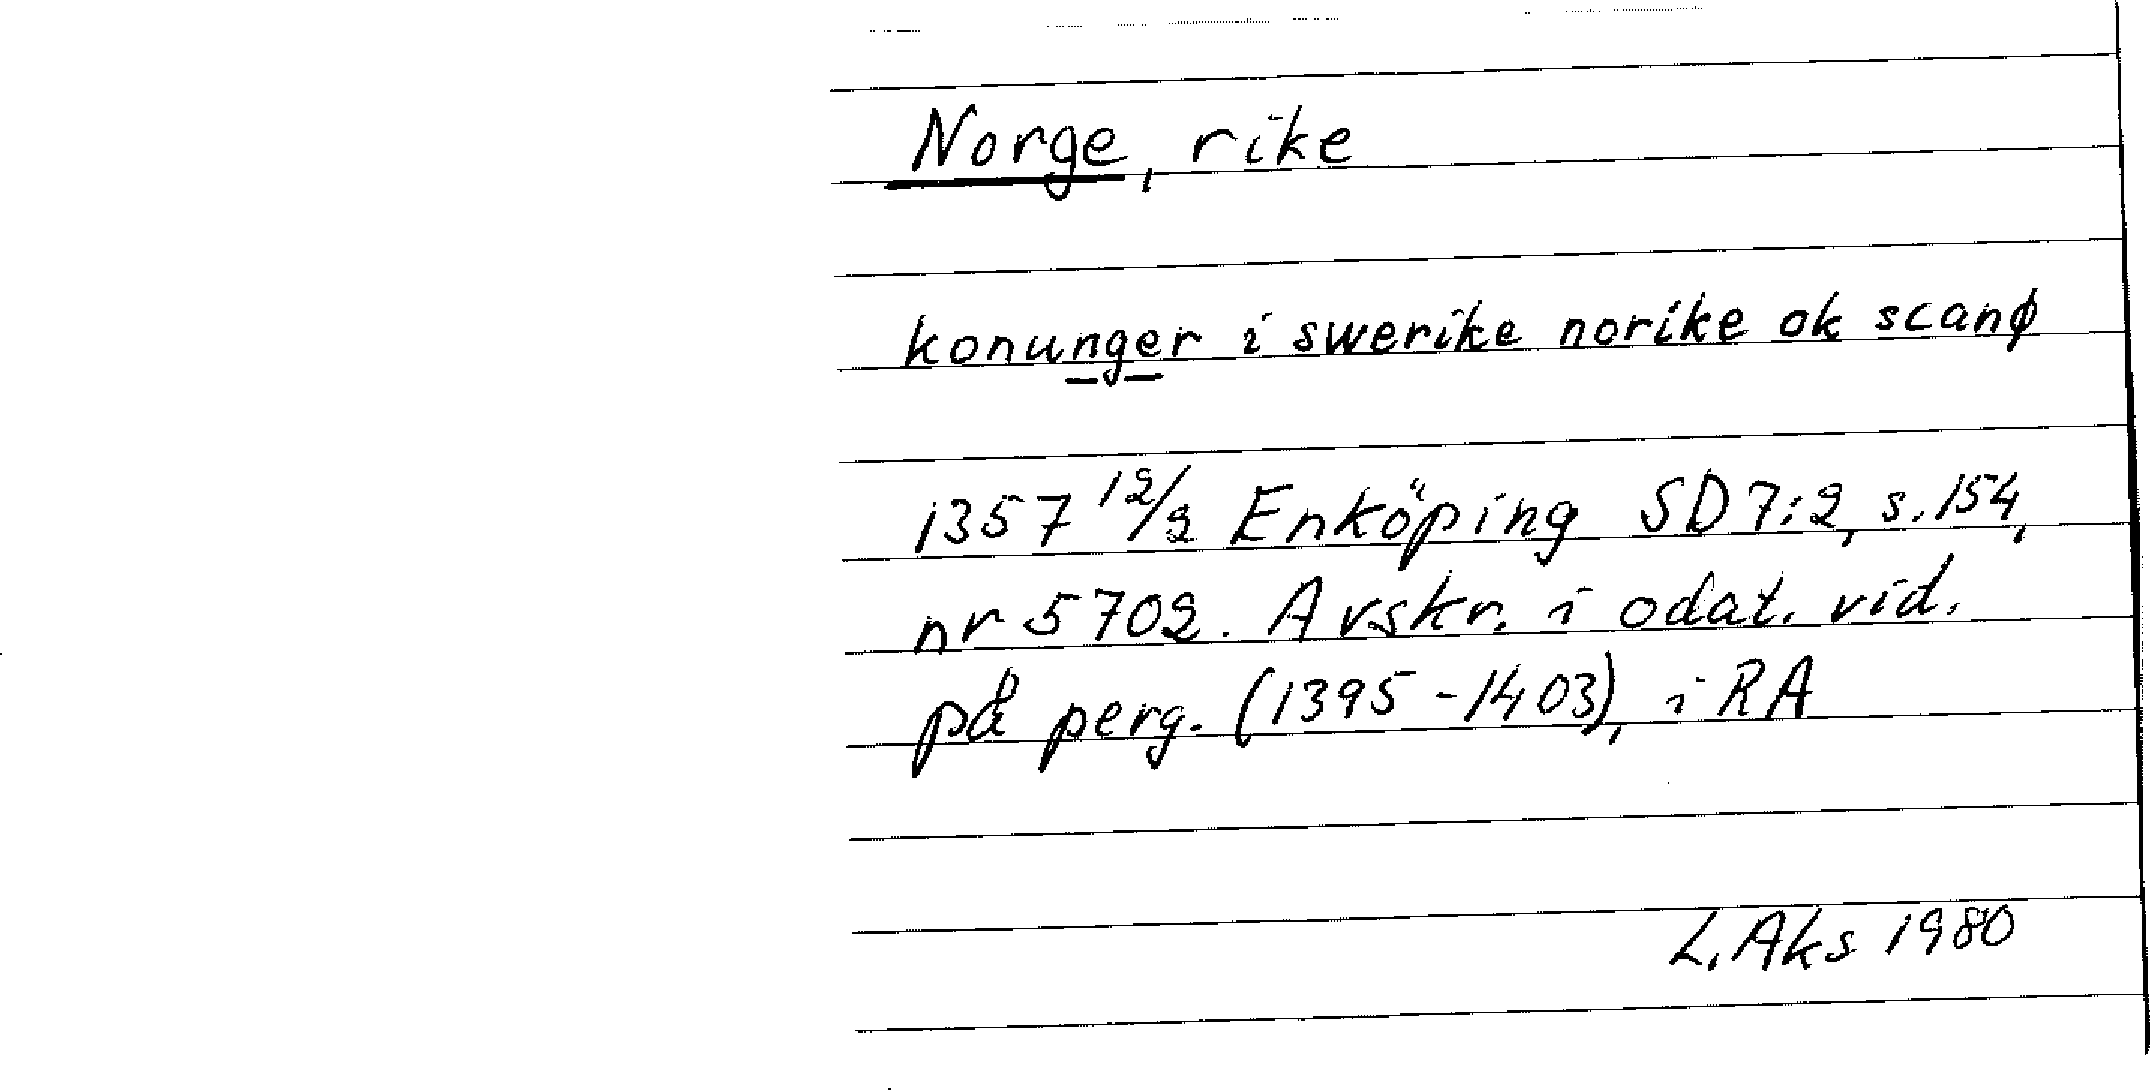 Norge, rike
konunger i swerike norike ok scanø
1357 12/2 Enköping SD 7:2, s. 154,
nr 5702. Avskr. i odat. vid.
på perg. (1395-1403), i RA
L. Aks 1980